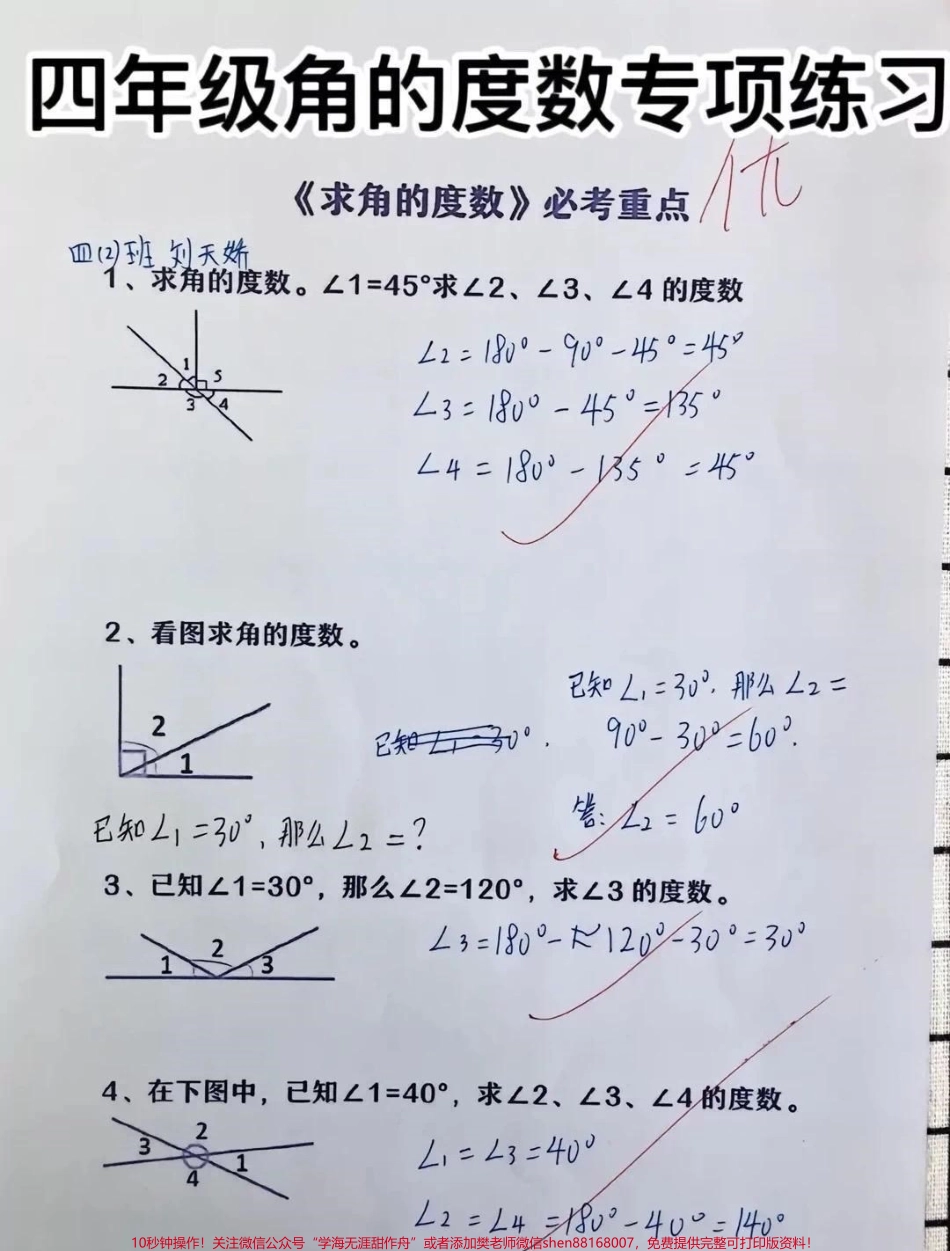 四年级角的度数专项练习
《求角的度数》必考重点
优
四(2)班 刘天娇
1、求角的度数。∠1=45°求∠2、∠3、∠4 的度数
1
2
5
3
4
∠2=180°-90°-45°=45°
∠3=180°-45°=135°
∠4=180°-135°=45°
2、看图求角的度数。
2
1
已知∠1=30°.那么∠2=
90°-30°=60°.
答:∠2=60°
已知∠1=30°,那么∠2=?
3、已知∠1=30°，那么∠2=120°，求∠3 的度数。
1
2
3
∠3=180°-120°-30°=30°
4、在下图中，已知∠1=40°，求∠2、∠3、∠4 的度数。
2
3
1
4
∠1=∠3=40°
∠2=∠4=180°-40°=140°
10秒钟操作！关注微信公众号“学海无涯甜作舟”或者添加樊老师微信shen88168007，免费提供完整可打印版资料！